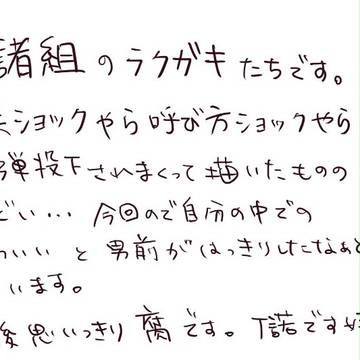 諸組のラクガキたちです。
ショックやら呼び方ショックやら
弾投下されまくって描いたものの
どい… 今回ので自分の中での
いい と 男前がはっきりしたなぁと
います。
後思いっきり 腐です。 T諾です